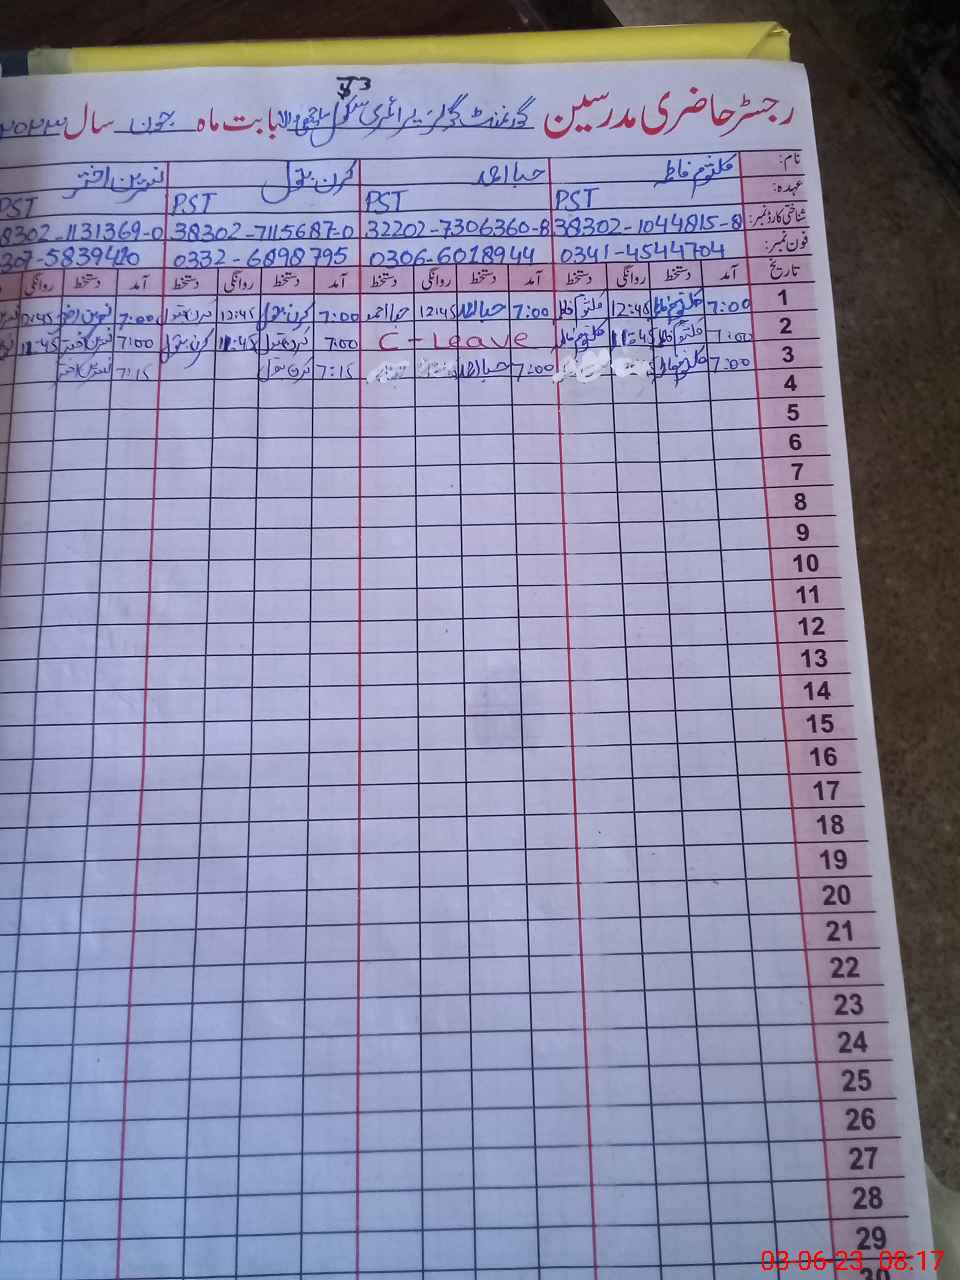 رجسٹر حاضری مدرسین گورنمنٹ گرلز پرائمری سکول بابت ماہ جون سال ۲۰۲۳
نام: کلثوم فاطمہ کرن بتول نسرین اختر
عہدہ: PST PST PST PST
شناختی کارڈ نمبر: 38302-1044815-8 32202-7306360-8 38302-7115687-0 38302-1131369-0
فون نمبر: 0341-4544704 0306-6018944 0332-6898795
تاریخ آمد دستخط روانگی دستخط آمد دستخط روانگی دستخط آمد دستخط روانگی دستخط آمد دستخط روانگی
1 7:00 کلثوم فاطمہ 12:45 7:00 12:45 7:00 کرن بتول 12:45 7:00 نسرین اختر 12:45
2 7:00 کلثوم فاطمہ 11:45 C-Leave 7:00 کرن بتول 11:45 کرن بتول 7:00 نسرین اختر 11:45
3 7:00 کلثوم فاطمہ 7:00 7:15 کرن بتول 7:15 نسرین اختر
4
5
6
7
8
9
10
11
12
13
14
15
16
17
18
19
20
21
22
23
24
25
26
27
28
29
30
03-06-23 08:17